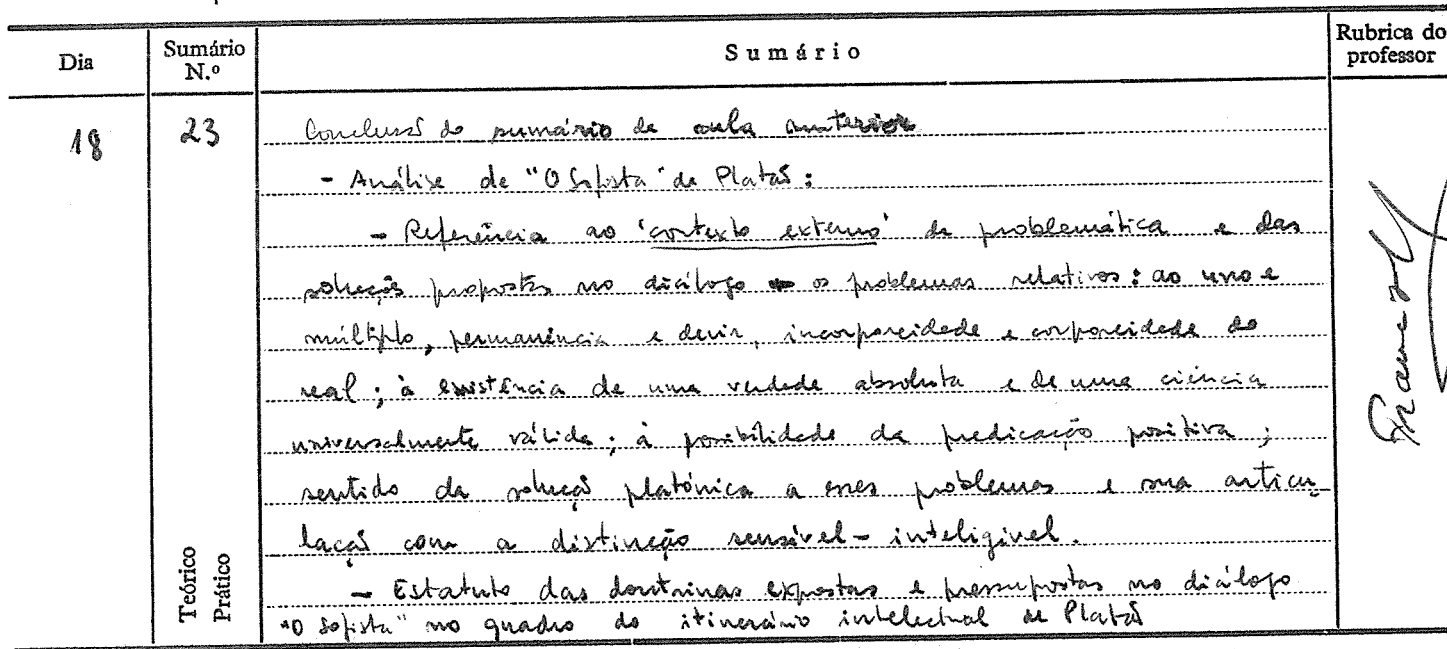 Dia
Sumário N.º
Sumário
Rubrica do professor
18
23
Conclusão do sumário da aula anterior
- Análise de "O Sofista" de Platão:
- Referência ao 'contexto externo' da problemática e das
soluções propostas no diálogo os problemas relativos: ao uno e
múltiplo, permanência e devir, incorporeidade e corporeidade do
real; à existência de uma verdade absoluta e de uma ciência
universalmente válida; à possibilidade da predicação positiva;
sentido da solução platónica a esses problemas e sua articu-
lação com a distinção sensível - inteligível.
- Estatuto das doutrinas expostas e pressupostas no diálogo
"O Sofista" no quadro do itinerário intelectual de Platão
Teórico
Prático